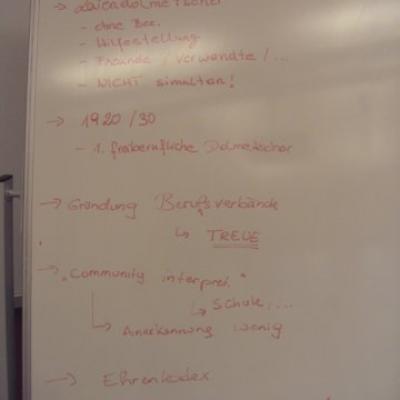 → Laiendolmetscher
- ohne Bez.
- Hilfestellung
- Freunde / Verwandte / ...
- NICHT simultan!
→ 1920 / 30
- 1. freiberufliche Dolmetscher
→ Gründung Berufsverbände
↳ TREUE
→ "Community interpret."
↳ Schule, ...
↳ Anerkennung wenig
→ Ehrenkodex